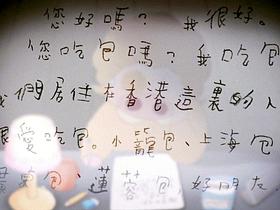 您好嗎？ 我很好。
您吃包嗎？ 我吃包
我們居住在香港這裏的人
很愛吃包。小籠包、上海包
包、蓮蓉包 好朋友